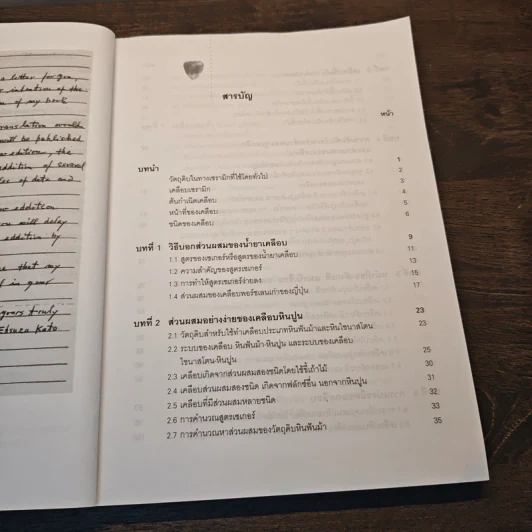 a letter for you,
intention of the
of my book
translation would
will be published
new edition, the
addition of several
of data and
new addition
you will delay
addition by
that my
in your
yours truly
Etsuzo Kato
สารบัญ
หน้า
บทนำ 1
วัตถุดิบในทางเซรามิกที่ใช้โดยทั่วไป 2
เคลือบเซรามิก 3
ต้นกำเนิดเคลือบ 4
หน้าที่ของเคลือบ 5
ชนิดของเคลือบ 6
บทที่ 1 วิธีบอกส่วนผสมของน้ำยาเคลือบ 9
1.1 สูตรของเซเกอร์หรือสูตรของน้ำยาเคลือบ 11
1.2 ความสำคัญของสูตรเซเกอร์ 13
1.3 การทำให้สูตรเซเกอร์ง่ายลง 15
1.4 ส่วนผสมของเคลือบพอร์ซเลนเก่าของญี่ปุ่น 17
บทที่ 2 ส่วนผสมอย่างง่ายของเคลือบหินปูน 23
2.1 วัตถุดิบสำหรับใช้ทำเคลือบประเภทหินฟันม้าและหินไชนาสโตน 23
2.2 ระบบของเคลือบ หินฟันม้า-หินปูน และระบบของเคลือบ
ไชนาสโตน-หินปูน 25
2.3 เคลือบเกิดจากส่วนผสมสองชนิดโดยใช้ขี้เถ้าไม้ 30
2.4 เคลือบส่วนผสมสองชนิด เกิดจากฟลักซ์อื่น นอกจากหินปูน 31
2.5 เคลือบที่มีส่วนผสมหลายชนิด 32
2.6 การคำนวณสูตรเซเกอร์ 33
2.7 การคำนวณหาส่วนผสมของวัตถุดิบหินฟันม้า 35